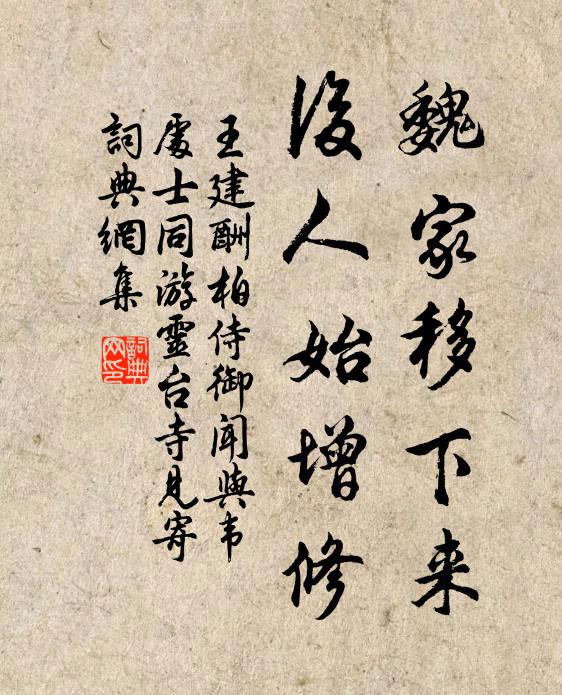 魏家移下来
後人始增修
王建酬柏侍御闻與韦
處士同游靈台寺見寄
詞典網集
詞典
网印